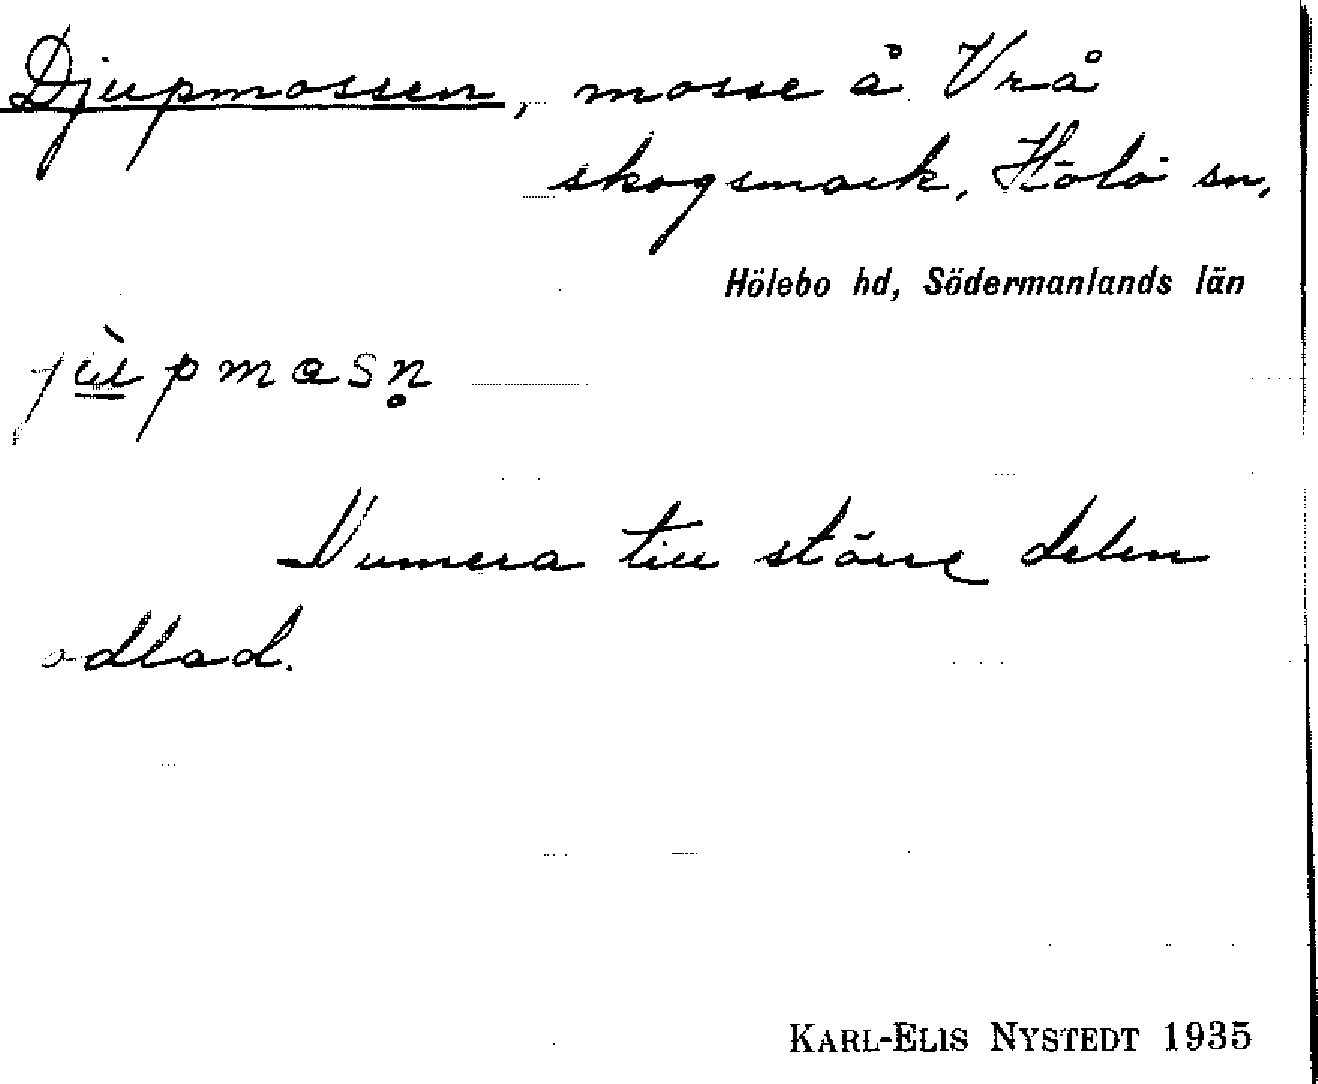 Djupmossen, mosse å Vrå
skogsmark, Hölö sn,
Hölebo hd, Södermanlands län
jùpmasn̥
Numera till större delen
odlad.
KARL-ELIS NYSTEDT 1935